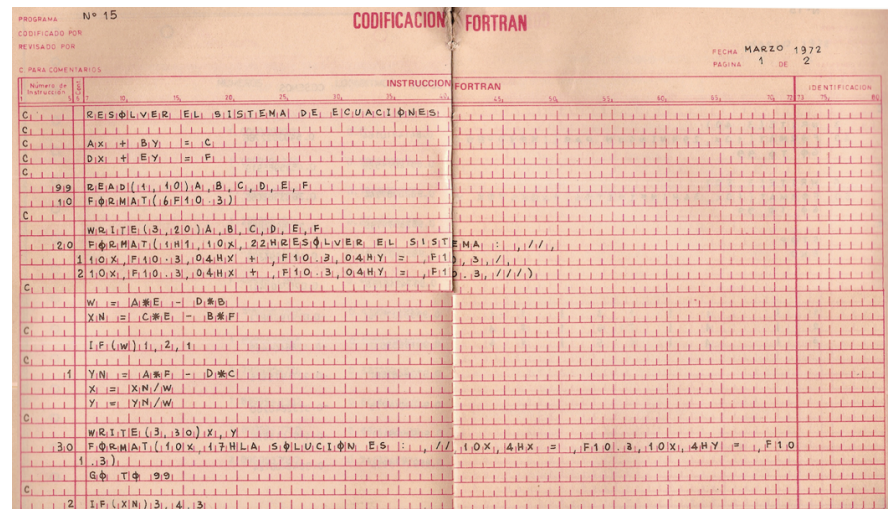 PROGRAMA Nº 15
CODIFICACION FORTRAN
CODIFICADO POR
REVISADO POR
FECHA MARZO 1972
PAGINA 1 DE 2
C PARA COMENTARIOS
Número de Instrucción Cont. INSTRUCCION FORTRAN IDENTIFICACION
1 5 6 7 10 15 20 25 30 35 40 45 50 55 60 65 70 72 73 75 80
C RESØLVER EL SISTEMA DE ECUACIØNES
C
C AX + BY = C
C DX + EY = F
C
99 READ(1,10)A,B,C,D,E,F
10 FØRMAT(6F10.3)
C
WRITE(3,20)A,B,C,D,E,F
20 FØRMAT(1H1,10X,22HRESØLVER EL SISTEMA : ,//,
1 10X,F10.3,04HX + ,F10.3,04HY = ,F10.3,/,
2 10X,F10.3,04HX + ,F10.3,04HY = ,F10.3,///)
C
W = A*E - D*B
XN = C*E - B*F
C
IF(W)1,2,1
C
1 YN = A*F - D*C
X = XN/W
Y = YN/W
C
WRITE(3,30)X,Y
30 FØRMAT(10X,17HLA SØLUCIØN ES : ,//,10X,4HX = ,F10.3,10X,4HY = ,F10
1 .3)
GØ TØ 99
C
2 IF(XN)3,4,3